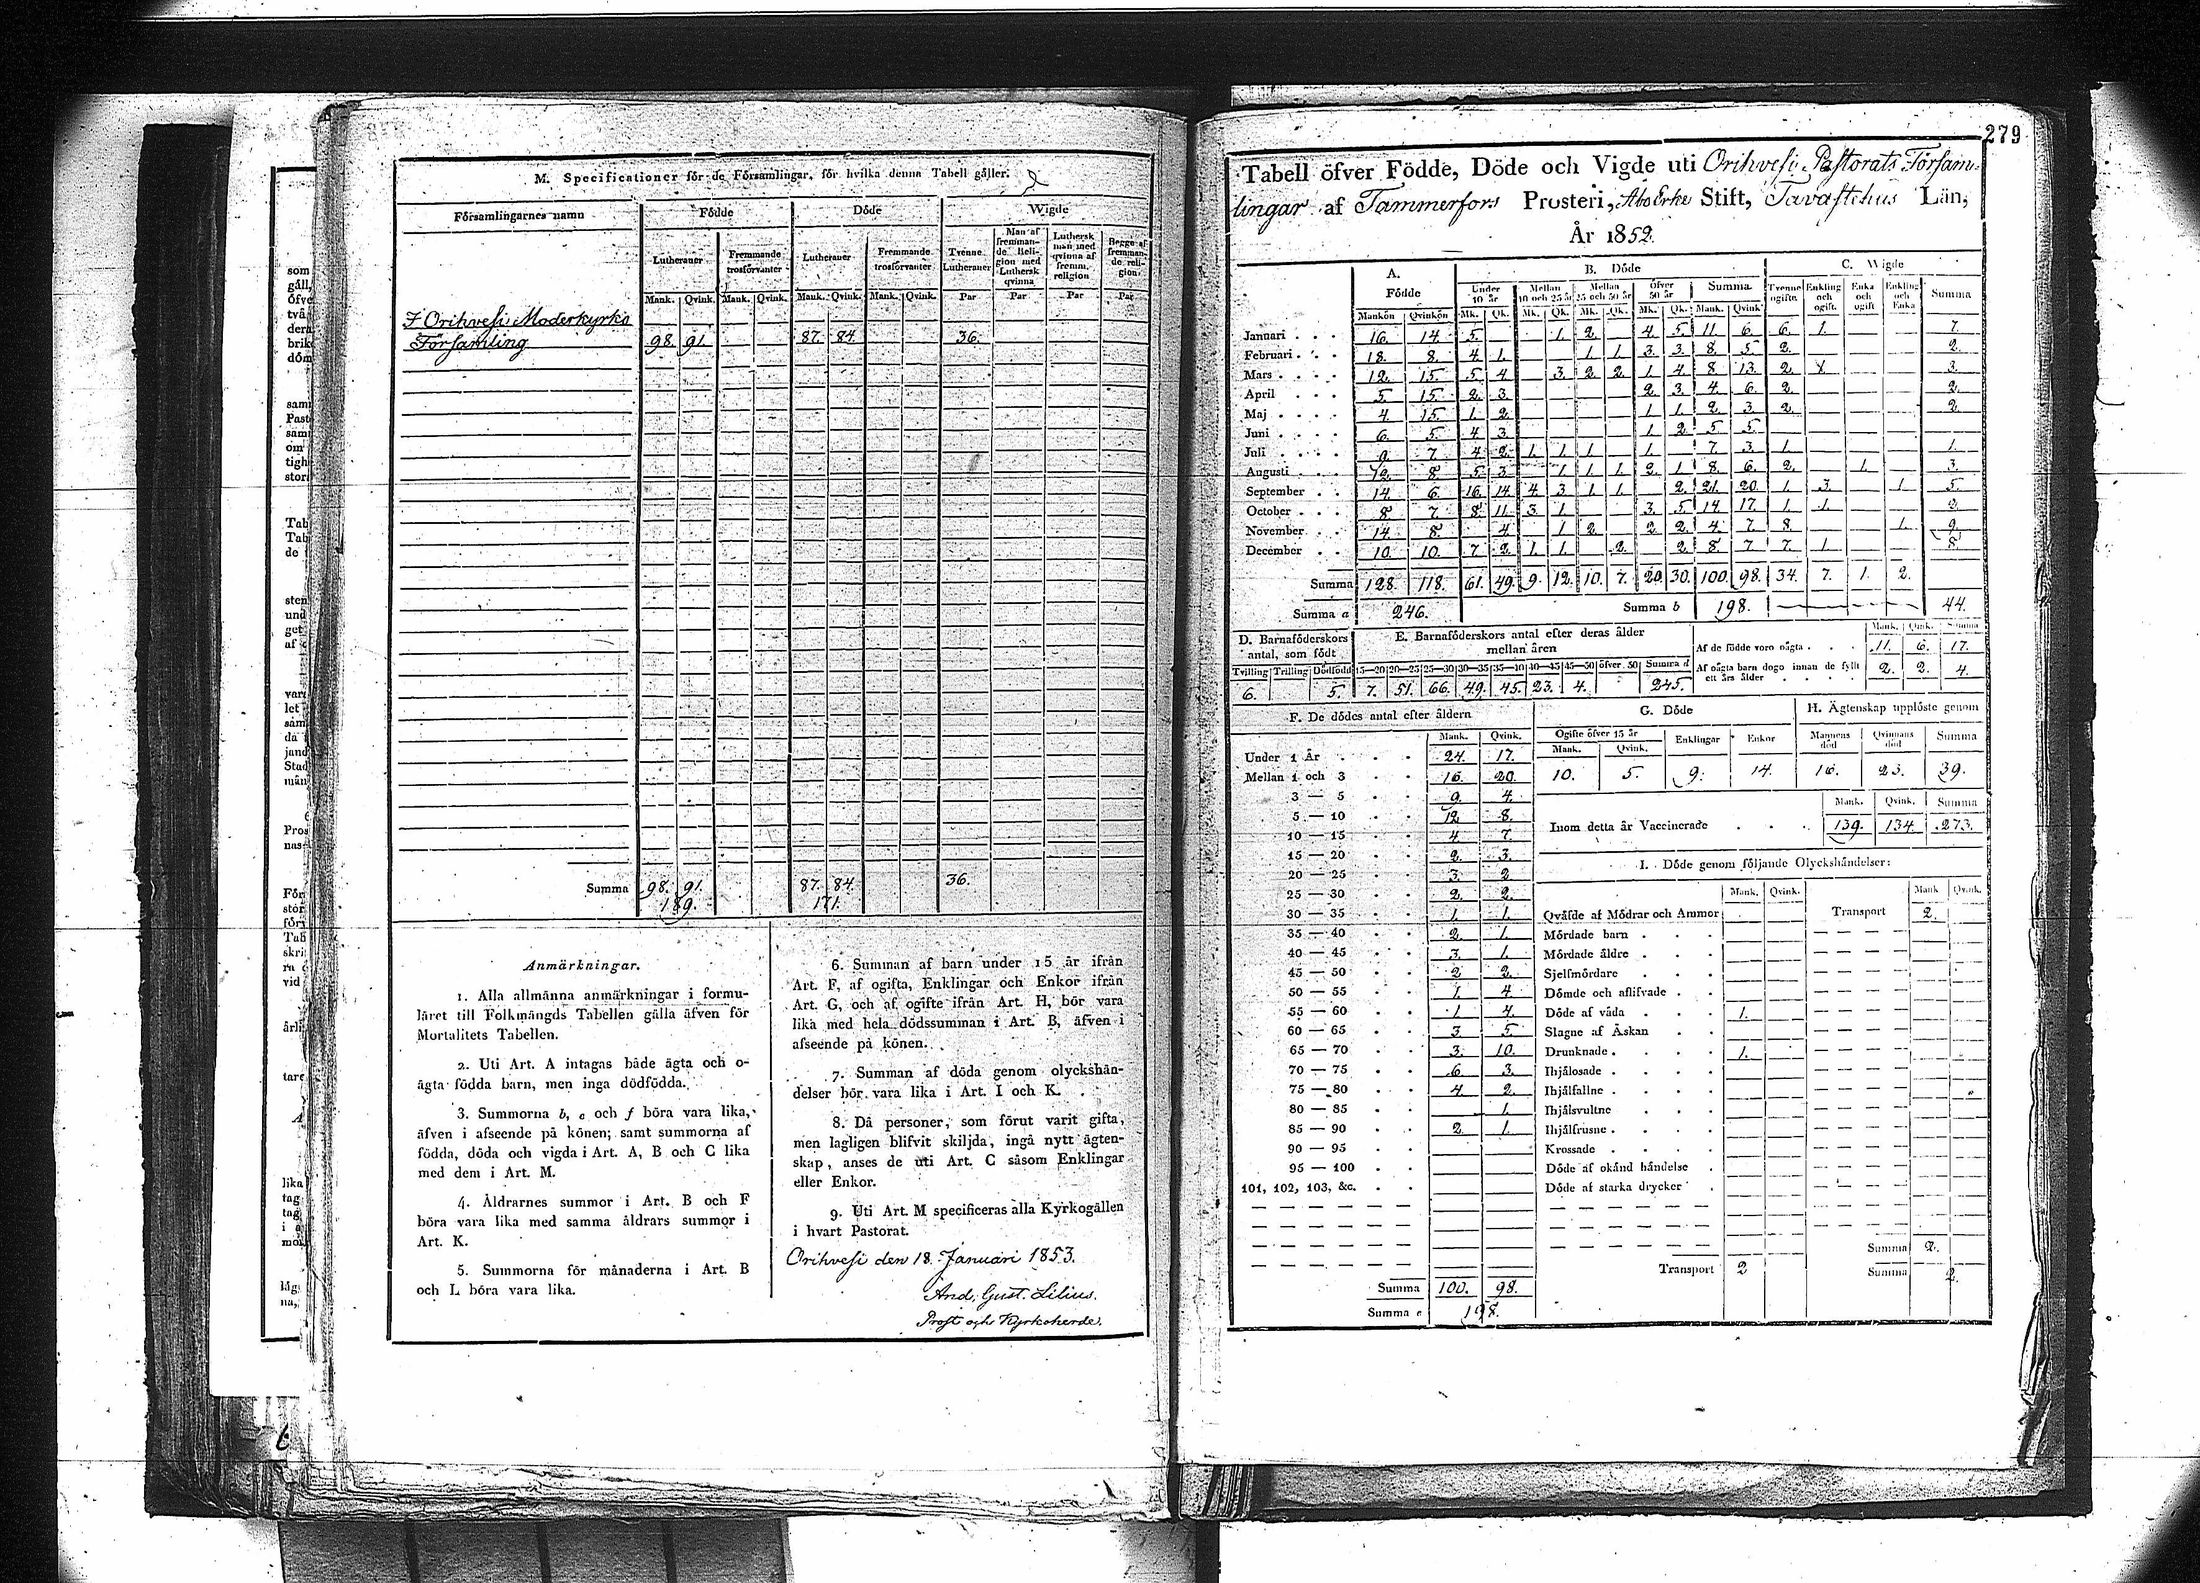 M. Specificationer för de Församlingar, för hvilka denna Tabell gäller.
Församlingarnes namn Födde Döde Wigde
Lutheraner Fremmande trosförvanter Lutheraner Fremmande trosförvanter Tvenne Lutheraner Man af fremmande Religion med Luthersk qvinna Luthersk man med qvinna af fremm. religion Begge af fremmande religion
Mank. Qvink. Mank. Qvink. Mank. Qvink. Mank. Qvink. Par Par Par Par
I Orihvesi Moderkyrko
Församling 98. 91. 87. 84. 36.
Summa 98. 91. 87. 84. 36.
189. 171.
Anmärkningar.
1. Alla allmänna anmärkningar i formu-
läret till Folkmängds Tabellen gälla äfven för
Mortalitets Tabellen.
2. Uti Art. A intagas både ägta och o-
ägta födda barn, men inga dödfödda.
3. Summorna b, c och f böra vara lika,
äfven i afseende på könen; samt summorna af
födda, döda och vigda i Art. A, B och C lika
med dem i Art. M.
4. Åldrarnes summor i Art. B och F
böra vara lika med samma åldrars summor i
Art. K.
5. Summorna för månaderna i Art. B
och L böra vara lika.
6. Summan af barn under 15 år ifrån
Art. F, af ogifta, Enklingar och Enkor ifrån
Art. G, och af ogifte ifrån Art. H, bör vara
lika med hela dödssumman i Art. B, äfven i
afseende på könen.
7. Summan af döda genom olyckshän-
delser bör vara lika i Art. I och K.
8. Då personer, som förut varit gifta,
men lagligen blifvit skiljda, ingå nytt ägten-
skap, anses de uti Art. C såsom Enklingar
eller Enkor.
9. Uti Art. M specificeras alla Kyrkogällen
i hvart Pastorat.
Orihvesi den 18. Januari 1853.
And. Gust. Lilius.
Prost och Kyrkoherde.
279
Tabell öfver Födde, Döde och Vigde uti Orihvesi Pastorats Försam-
lingar af Tammerfors Prosteri, Åbo Erke Stift, Tavastehus Län,
År 1852.
A. Födde B. Döde C. Wigde
Under 10 år Mellan 10 och 25 år Mellan 25 och 50 år Öfver 50 år Summa Tvenne ogifte Enkling och ogift Enka och ogift Enkling och Enka Summa
Mankön Qvinkön Mk. Qk. Mk. Qk. Mk. Qk. Mk. Qk. Mank. Qvink.
Januari 16. 14. 5. 1. 2. 4. 5. 11. 6. 6. 1. 7.
Februari 18. 8. 4. 1. 1. 1. 3. 3. 8. 5. 2. 2.
Mars 12. 15. 5. 4. 3. 2. 2. 1. 4. 8. 13. 2. 1. 3.
April 5. 15. 2. 3. 2. 3. 4. 6. 2. 2.
Maj 4. 15. 1. 2. 1. 1. 2. 3. 2. 2.
Juni 6. 5. 4. 3. 1. 2. 5. 5.
Juli 9. 7. 4. 2. 1. 1. 1. 1. 7. 3. 1. 1.
Augusti 12. 8. 5. 3. 1. 1. 1. 2. 1. 8. 6. 2. 1. 3.
September 14. 6. 16. 14. 4. 3. 1. 1. 2. 21. 20. 1. 3. 1. 5.
October 8. 7. 8. 11. 3. 1. 3. 5. 14. 17. 1. 1. 2.
November 14. 8. 4. 1. 2. 2. 2. 4. 7. 8. 1. 9.
December 10. 10. 7. 2. 1. 1. 2. 2. 8. 7. 7. 1. 8.
Summa 128. 118. 61. 49. 9. 12. 10. 7. 20. 30. 100. 98. 34. 7. 1. 2.
Summa a 246. Summa b 198. 44.
D. Barnaföderskors antal, som födt
Tvilling Trilling Dödfödd
6. 5.
E. Barnaföderskors antal efter deras ålder mellan åren
15—20 20—25 25—30 30—35 35—40 40—45 45—50 öfver 50 Summa d
7. 51. 66. 49. 45. 23. 4. 245.
Mank. Qvink. Summa
Af de födde voro oägta 11. 6. 17.
Af oägta barn dogo innan de fyllt ett års ålder 2. 2. 4.
F. De dödes antal efter åldern
Mank. Qvink.
Under 1 År 24. 17.
Mellan 1 och 3 16. 20.
3 — 5 9. 4.
5 — 10 12. 8.
10 — 15 4. 7.
15 — 20 2. 3.
20 — 25 3. 2
25 — 30 2. 2.
30 — 35 1. 1.
35 — 40 2. 1.
40 — 45 3. 1.
45 — 50 2 2.
50 — 55 1. 4.
55 — 60 1 4.
60 — 65 3 5.
65 — 70 3. 10.
70 — 75 6 3.
75 — 80 4. 2.
80 — 85 1.
85 — 90 2. 1.
90 — 95
95 — 100
101, 102, 103, &c.
Summa 100. 98.
Summa c 198.
G. Döde
Ogifte öfver 15 år Enklingar Enkor
Mank. Qvink.
10. 5. 9. 14.
H. Ägtenskap upplöste genom
Mannens död Qvinnans död Summa
16. 23. 39.
Mank. Qvink. Summa
Inom detta år Vaccinerade 139. 134. 273.
I. Döde genom följande Olyckshändelser:
Mank. Qvink. Mank. Qvink.
Qväfde af Mödrar och Ammor Transport 2.
Mördade barn
Mördade äldre
Sjelfmördare
Dömde och aflifvade
Döde af våda 1.
Slagne af Åskan
Drunknade 1.
Ihjälosade
Ihjälfallne
Ihjälsvultne
Ihjälfrusne
Krossade
Döde af okänd händelse
Döde af starka drycker
Summa 2.
Transport 2 Summa 2.